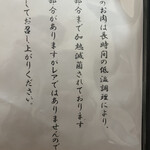 のお肉は長時間の低温調理により、
部分まで加熱滅菌されております
部分がありますがレアではありませんので
してお召し上がりください。